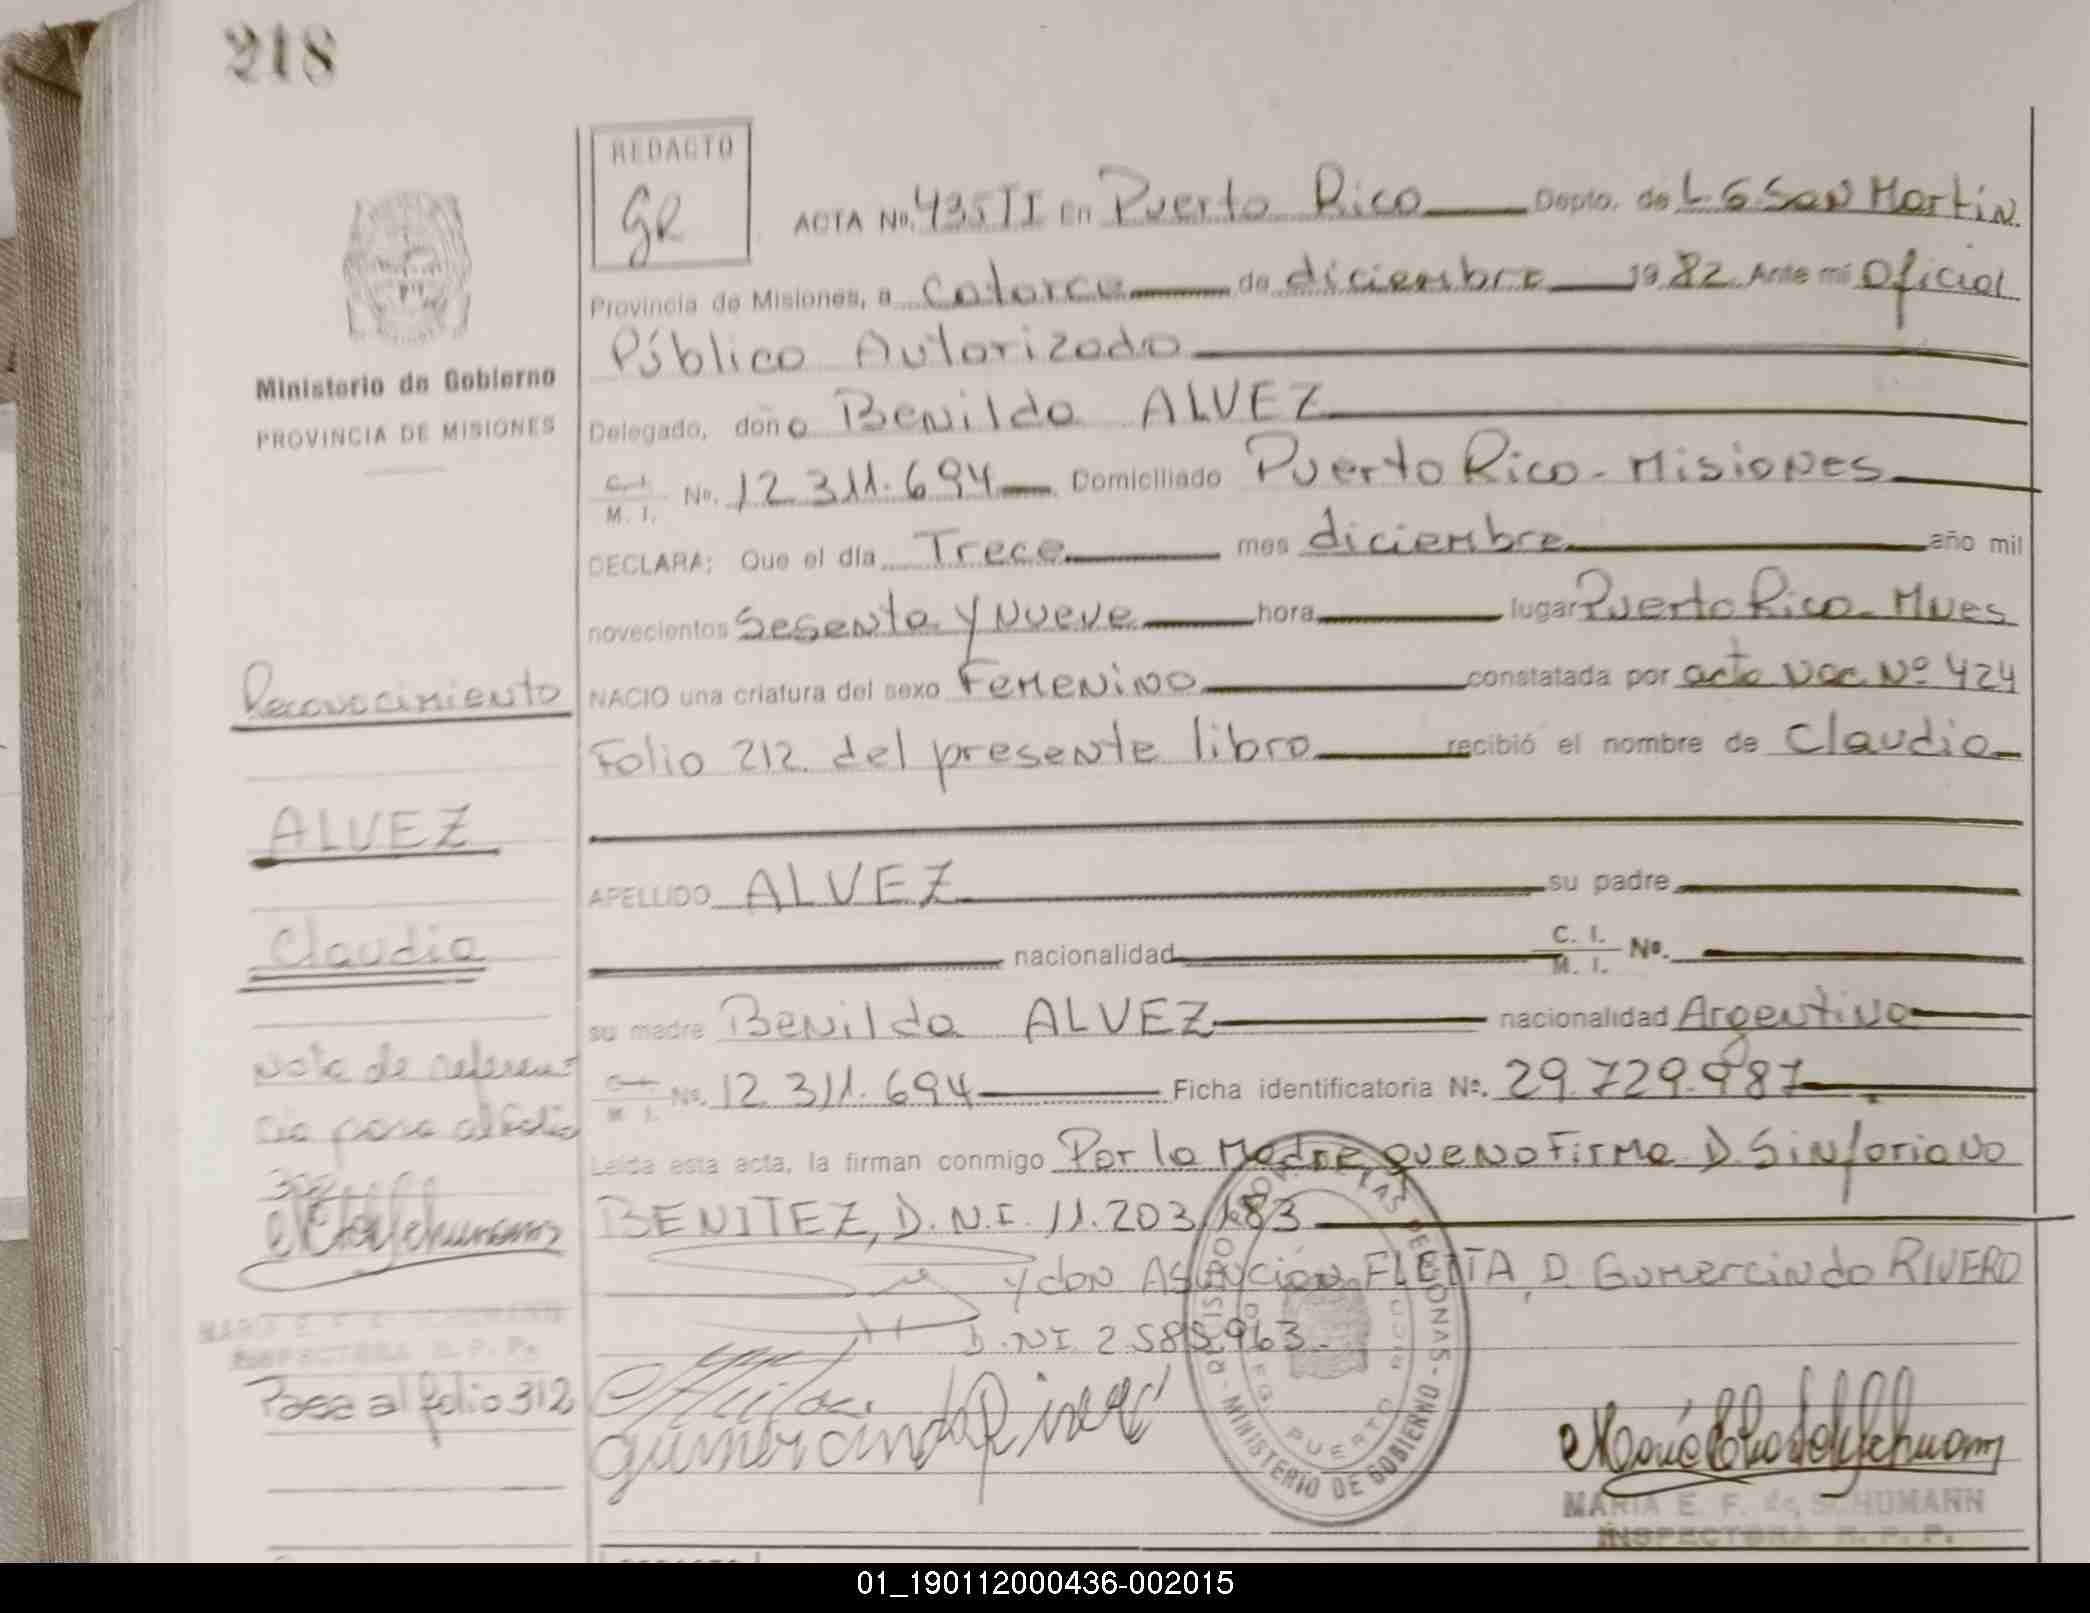 218
REDACTO
GR
ACTA No. 435 TI En Puerto Rico Depto. de L G San Martin.
Provincia de Misiones, a catorce de diciembre 1982. Ante mi Oficial
Público Autorizado
Delegado, doña Benilda ALVEZ
C. I. / M. I. No. 12.311.694 Domiciliado Puerto Rico - Misiones
DECLARA; Que el día Trece mes diciembre año mil
novecientos Sesenta y Nueve hora lugar Puerto Rico - Mnes
NACIO una criatura del sexo Femenino constatada por acta Nac. Nº 424
Folio 212 del presente libro recibió el nombre de Claudia
APELLIDO ALVEZ su padre
nacionalidad C. I. / M. I. No.
su madre Benilda ALVEZ nacionalidad Argentina
M. I. No. 12.311.694 Ficha identificatoria Nº. 29.729.987
Leída esta acta, la firman conmigo Por la Madre que no Firma D. Sinforiano
BENITEZ, D.N.I. 11.203.183
y don Asunción FLEITA, D. Gumercindo RIVERO
D.NI 2.585.963.
Gumercindo Rivero
MARIA E. F. de SCHUMANN
INSPECTORA R. P. P.
MINISTERIO DE GOBIERNO
PUERTO
Ministerio de Gobierno
PROVINCIA DE MISIONES
Reconocimiento
ALVEZ
Claudia
Nota de referen-
cia pase al folio
312
MARIA E. F. de SCHUMANN
INSPECTORA R. P. P.
Pasa al folio 312
01_190112000436-002015